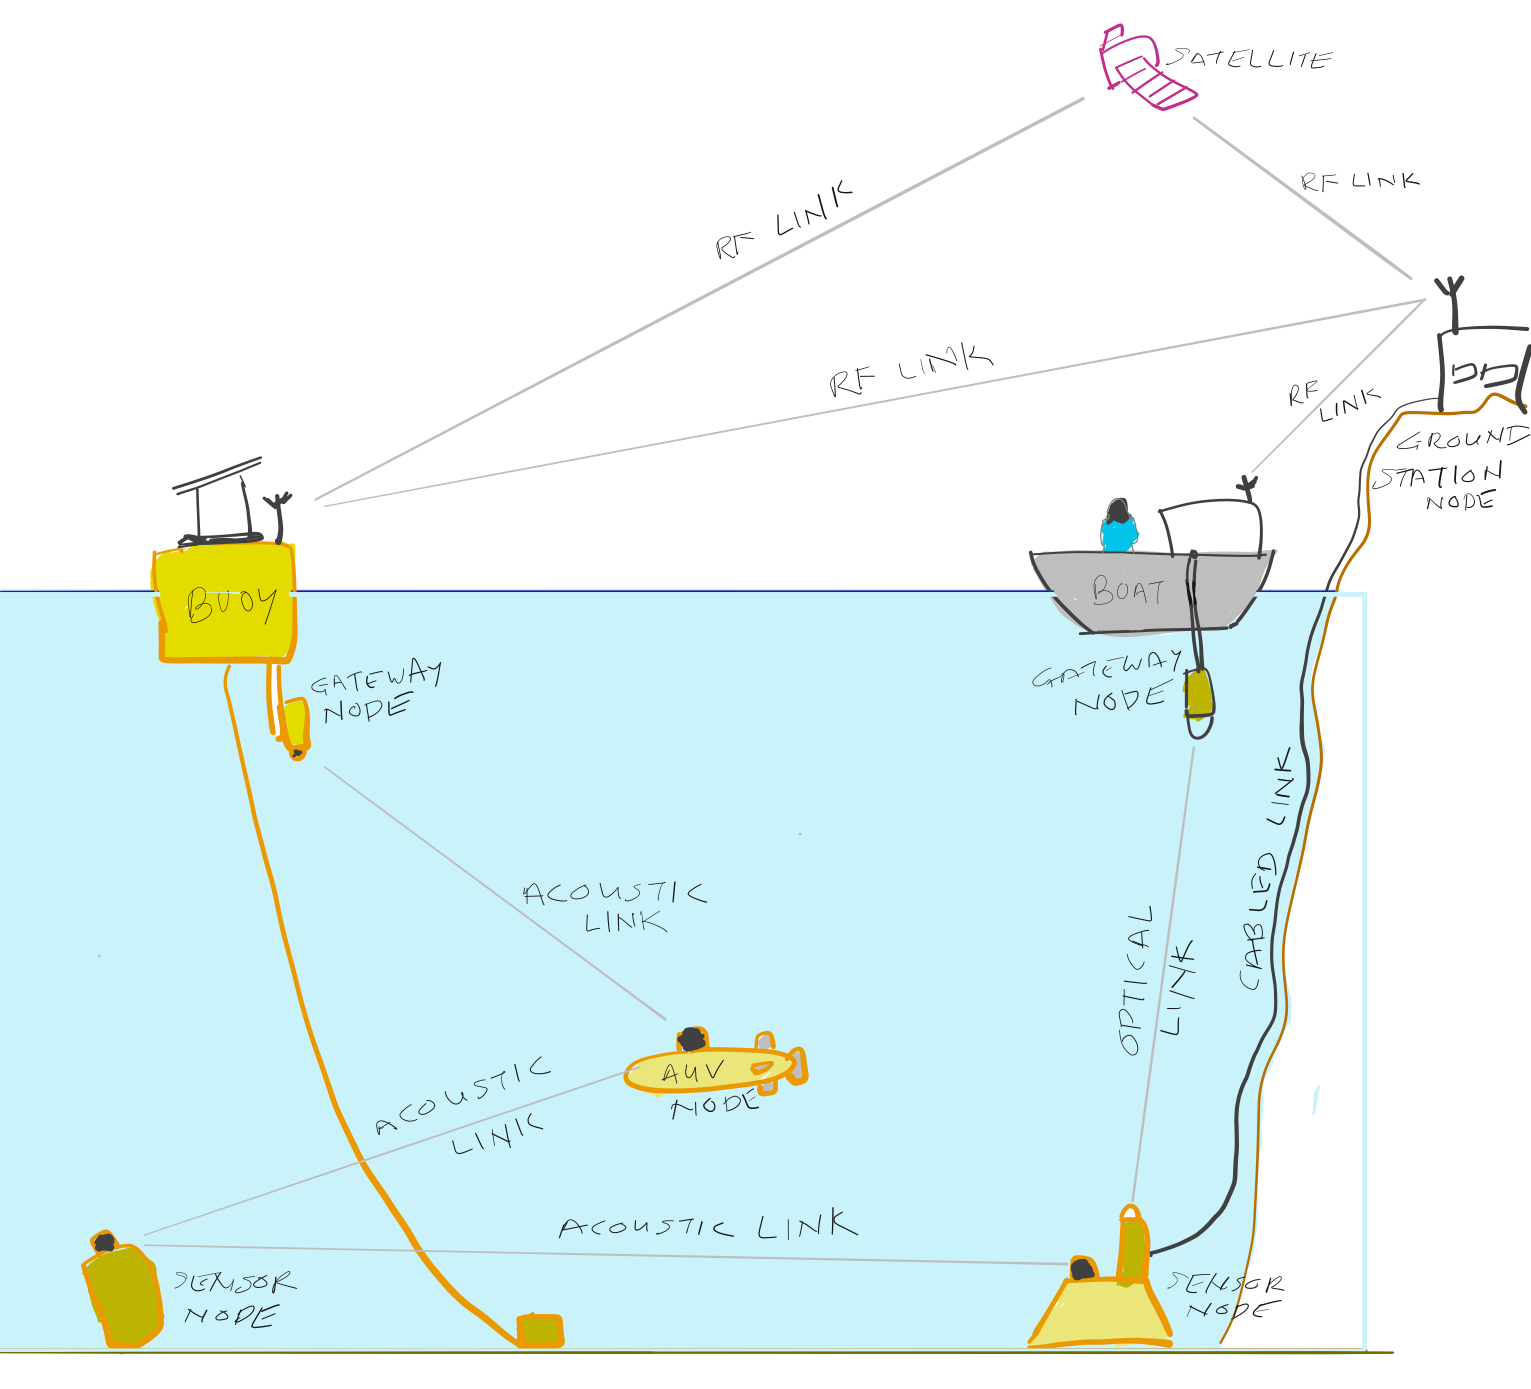 SATELLITE
RF LINK
RF LINK
RF LINK
RF
LINK
GROUND
STATION
NODE
BUOY
BOAT
GATEWAY
NODE
GATEWAY
NODE
CABLED LINK
ACOUSTIC
LINK
OPTICAL
LINK
AUV
NODE
ACOUSTIC
LINK
ACOUSTIC LINK
SENSOR
NODE
SENSOR
NODE